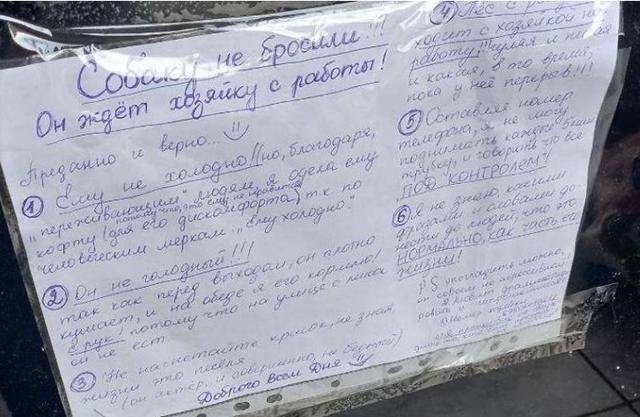 Собаку не бросили!!!
Он ждёт хозяйку с работы!
Преданно и верно...
① Ему не холодно!! Но, благодаря,
"переживающим" людям, я одела ему
потому что, это ему не нравится
кофту (для его дискомфорта) т.к по
человеческим меркам: "Ему холодно"
② Он не голодный!!!
так как перед выходом, он плотно
кушает, и на обеде я его кормлю!
с рук, потому что на улице с пенка
он не ест
③ Не нагнетайте красок, не зная
жизни это пёселя.
(он актёр, и совершенно, не бедный)
Доброго Всем Дня
④ Пёс с
ходит с хозяйкой на
работу!!! гуляя и писая
и какая, в то время,
пока у неё перерыв!!!
⑤ Оставляя номер
телефона, я не могу
поднимать каждые
трубку, и говорить что все
ПОД КОНТРОЛЕМ!
⑥ Я не знаю, какими
фразами и словами до-
нести до людей, что это
НОРМАЛЬНО, как часть его
жизни!
P.S погладить можно,
он совсем не агрессивный